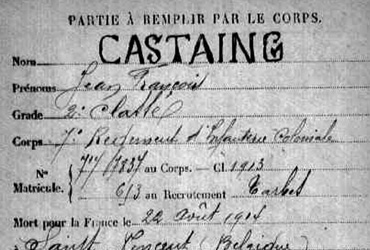 PARTIE À REMPLIR PAR LE CORPS.
Nom CASTAING
Prénoms Jean François
Grade 2e Classe
Corps 7e Regiment d'Infanterie Coloniale
N° Matricule. 717/7837 au Corps. — Cl. 1913
613 au Recrutement Tarbes
Mort pour la France le 22 Août 1914
à Saint Vincent (Belgique)